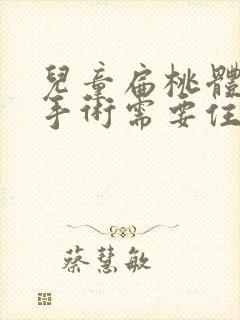 兒童扁桃體
手術需要住
蔡慧敏